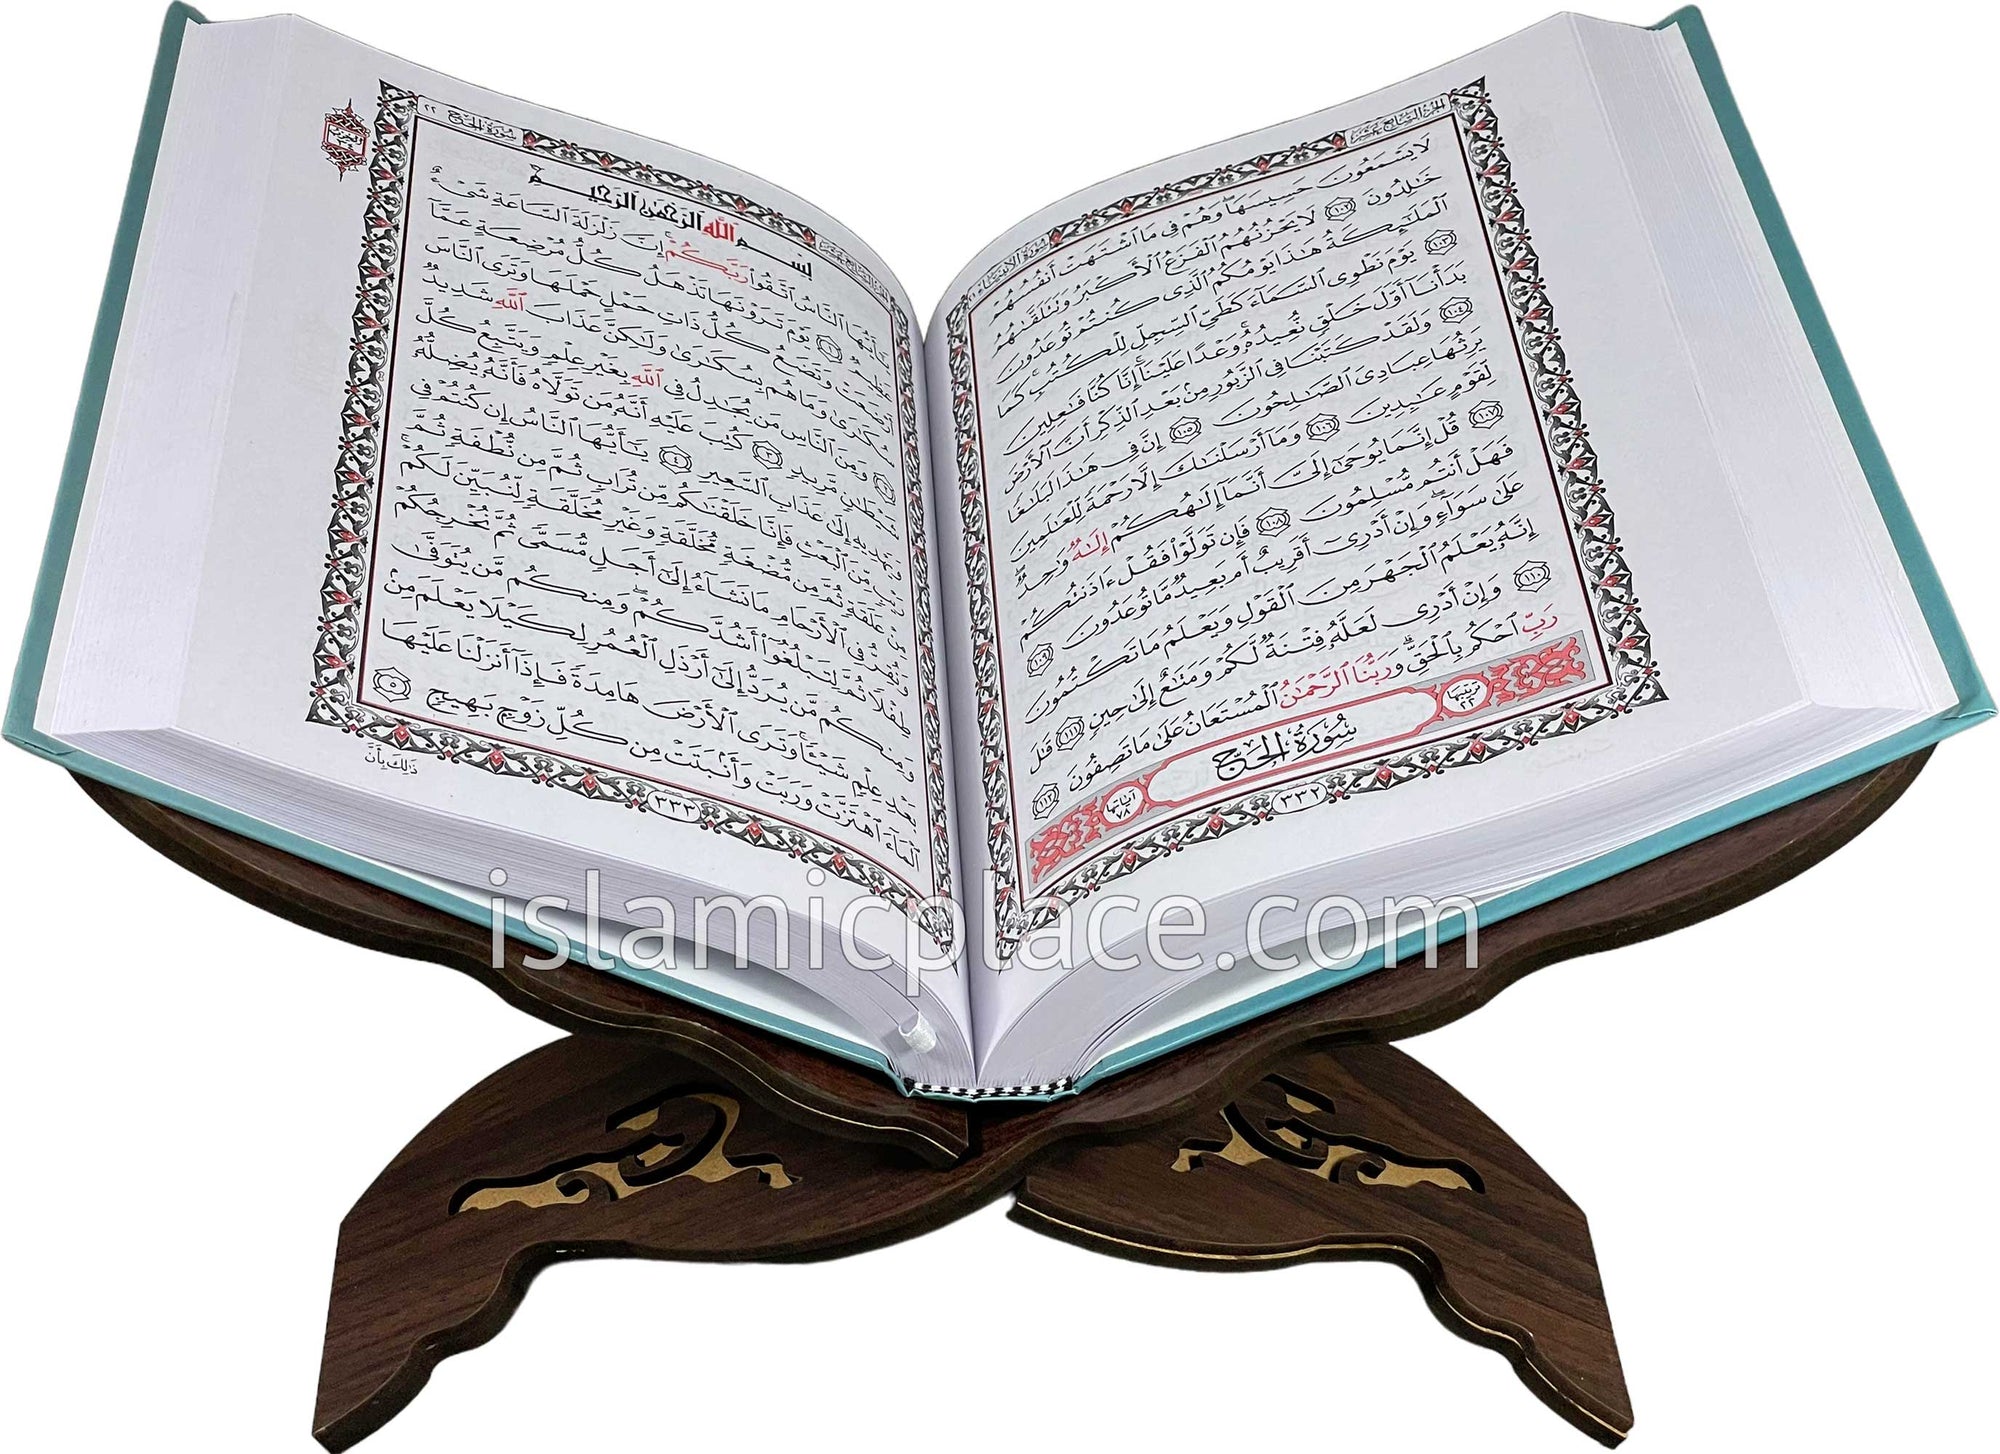 الجُزءُ السَّابِعُ عَشَر سُورَةُ الأَنبِيَاءِ ٢١
لَا يَسْمَعُونَ حَسِيسَهَا ۖ وَهُمْ فِي مَا ٱشْتَهَتْ أَنفُسُهُمْ
خَٰلِدُونَ ١٠٢ لَا يَحْزُنُهُمُ ٱلْفَزَعُ ٱلْأَكْبَرُ وَتَتَلَقَّىٰهُمُ
ٱلْمَلَٰٓئِكَةُ هَٰذَا يَوْمُكُمُ ٱلَّذِي كُنتُمْ تُوعَدُونَ
١٠٣ يَوْمَ نَطْوِي ٱلسَّمَآءَ كَطَيِّ ٱلسِّجِلِّ لِلْكُتُبِ ۚ كَمَا
بَدَأْنَآ أَوَّلَ خَلْقٍ نُّعِيدُهُۥ ۚ وَعْدًا عَلَيْنَآ ۚ إِنَّا كُنَّا فَٰعِلِينَ
١٠٤ وَلَقَدْ كَتَبْنَا فِي ٱلزَّبُورِ مِنۢ بَعْدِ ٱلذِّكْرِ أَنَّ ٱلْأَرْضَ
يَرِثُهَا عِبَادِيَ ٱلصَّٰلِحُونَ ١٠٥ إِنَّ فِي هَٰذَا لَبَلَٰغًا
لِّقَوْمٍ عَٰبِدِينَ ١٠٦ وَمَآ أَرْسَلْنَٰكَ إِلَّا رَحْمَةً لِّلْعَٰلَمِينَ
١٠٧ قُلْ إِنَّمَا يُوحَىٰٓ إِلَيَّ أَنَّمَآ إِلَٰهُكُمْ إِلَٰهٌ وَٰحِدٌ ۖ
فَهَلْ أَنتُم مُّسْلِمُونَ ١٠٨ فَإِن تَوَلَّوْا۟ فَقُلْ ءَاذَنتُكُمْ
عَلَىٰ سَوَآءٍ ۖ وَإِنْ أَدْرِيٓ أَقَرِيبٌ أَم بَعِيدٌ مَّا تُوعَدُونَ ١٠٩
إِنَّهُۥ يَعْلَمُ ٱلْجَهْرَ مِنَ ٱلْقَوْلِ وَيَعْلَمُ مَا تَكْتُمُونَ
١١٠ وَإِنْ أَدْرِي لَعَلَّهُۥ فِتْنَةٌ لَّكُمْ وَمَتَٰعٌ إِلَىٰ حِينٍ ١١١ قَٰلَ
رَبِّ ٱحْكُم بِٱلْحَقِّ ۗ وَرَبُّنَا ٱلرَّحْمَٰنُ ٱلْمُسْتَعَانُ عَلَىٰ مَا تَصِفُونَ ١١٢
ترتيبها ٢٢ سُورَةُ الحَجّ آياتها ٧٨
٣٣٢
الجُزءُ السَّابِعُ عَشَر سُورَةُ الحَجّ ٢٢
بِسْمِ ٱللَّهِ ٱلرَّحْمَٰنِ ٱلرَّحِيمِ
يَٰٓأَيُّهَا ٱلنَّاسُ ٱتَّقُوا۟ رَبَّكُمْ ۚ إِنَّ زَلْزَلَةَ ٱلسَّاعَةِ شَيْءٌ
عَظِيمٌ ١ يَوْمَ تَرَوْنَهَا تَذْهَلُ كُلُّ مُرْضِعَةٍ عَمَّآ
أَرْضَعَتْ وَتَضَعُ كُلُّ ذَاتِ حَمْلٍ حَمْلَهَا وَتَرَى ٱلنَّاسَ
سُكَٰرَىٰ وَمَا هُم بِسُكَٰرَىٰ وَلَٰكِنَّ عَذَابَ ٱللَّهِ شَدِيدٌ
٢ وَمِنَ ٱلنَّاسِ مَن يُجَٰدِلُ فِي ٱللَّهِ بِغَيْرِ عِلْمٍ وَيَتَّبِعُ كُلَّ
شَيْطَٰنٍ مَّرِيدٍ ٣ كُتِبَ عَلَيْهِ أَنَّهُۥ مَن تَوَلَّاهُ فَأَنَّهُۥ يُضِلُّهُۥ
وَيَهْدِيهِ إِلَىٰ عَذَابِ ٱلسَّعِيرِ ٤ يَٰٓأَيُّهَا ٱلنَّاسُ إِن كُنتُمْ فِي
رَيْبٍ مِّنَ ٱلْبَعْثِ فَإِنَّا خَلَقْنَٰكُم مِّن تُرَابٍ ثُمَّ مِن نُّطْفَةٍ ثُمَّ
مِنْ عَلَقَةٍ ثُمَّ مِن مُّضْغَةٍ مُّخَلَّقَةٍ وَغَيْرِ مُخَلَّقَةٍ لِّنُبَيِّنَ لَكُمْ ۚ
وَنُقِرُّ فِي ٱلْأَرْحَامِ مَا نَشَآءُ إِلَىٰٓ أَجَلٍ مُّسَمًّى ثُمَّ نُخْرِجُكُمْ
طِفْلًا ثُمَّ لِتَبْلُغُوٓا۟ أَشُدَّكُمْ ۖ وَمِنكُم مَّن يُتَوَفَّىٰ
وَمِنكُم مَّن يُرَدُّ إِلَىٰٓ أَرْذَلِ ٱلْعُمُرِ لِكَيْلَا يَعْلَمَ مِنۢ
بَعْدِ عِلْمٍ شَيْـًٔا ۚ وَتَرَى ٱلْأَرْضَ هَامِدَةً فَإِذَآ أَنزَلْنَا عَلَيْهَا
ٱلْمَآءَ ٱهْتَزَّتْ وَرَبَتْ وَأَنۢبَتَتْ مِن كُلِّ زَوْجٍۭ بَهِيجٍ ٥
٣٣٣
ذَٰلِكَ بِأَنَّ
islamicplace.com